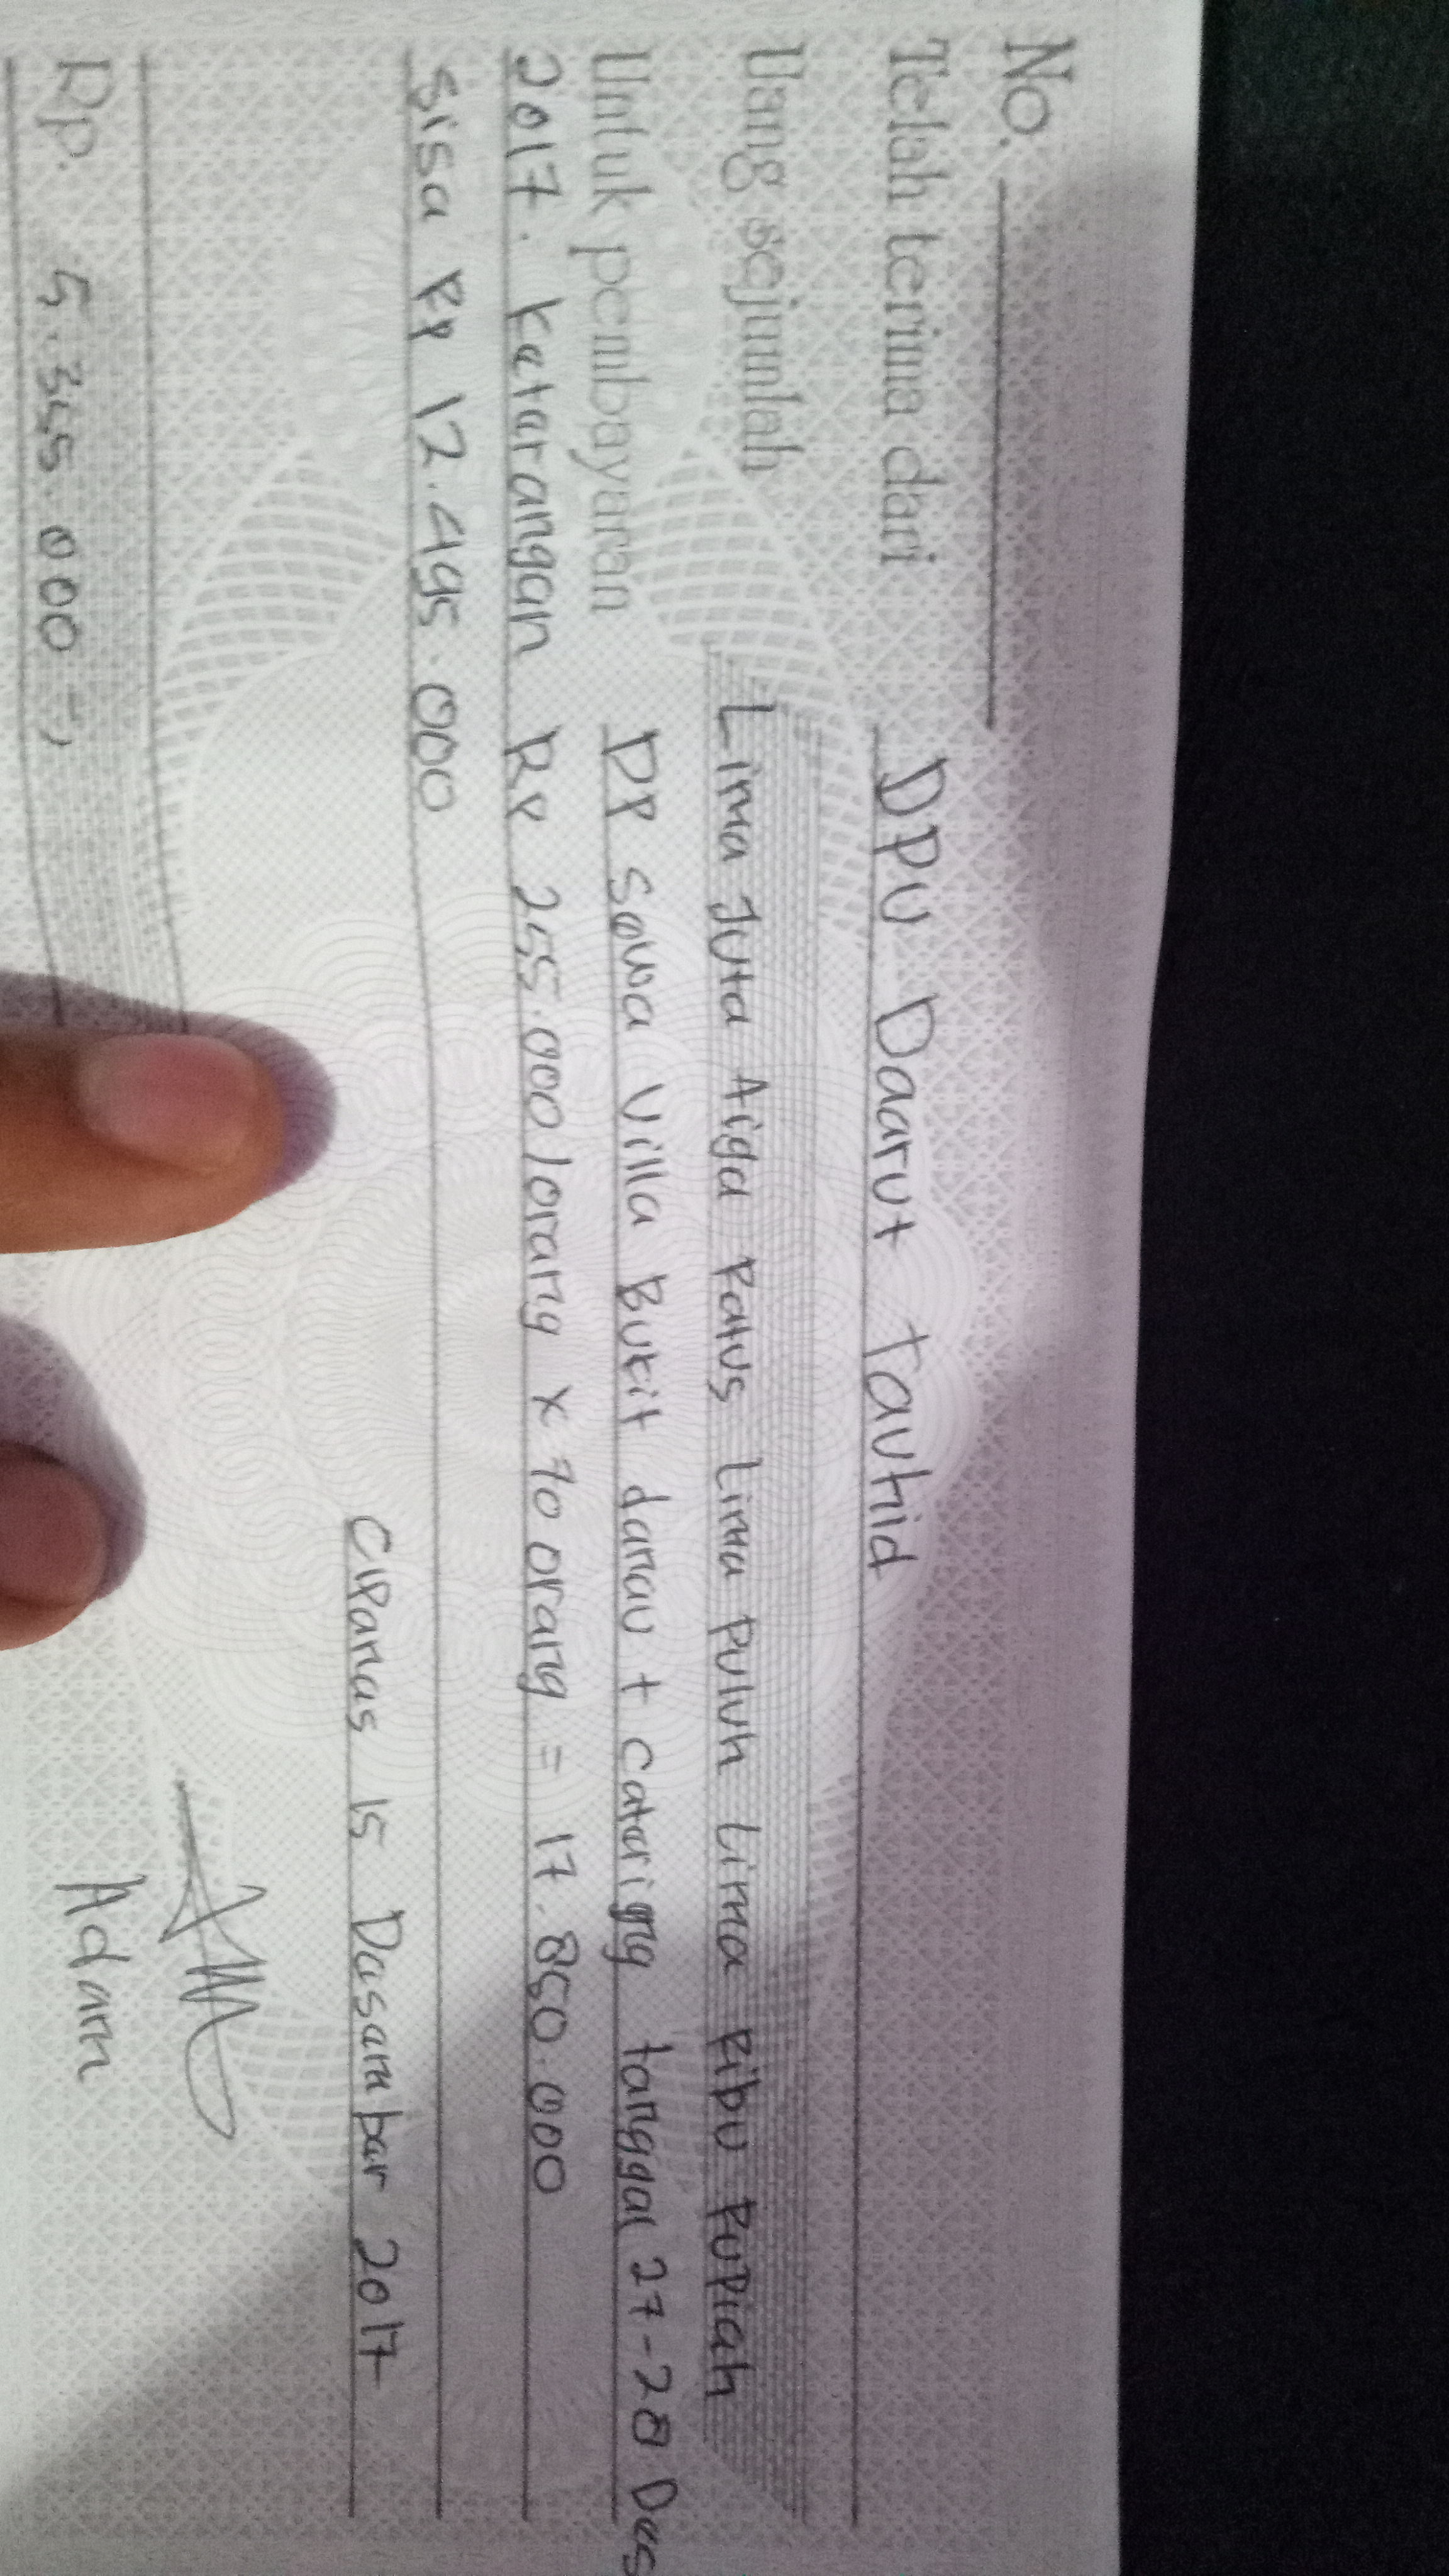 No.
Telah terima dari DPU Daarut Tauhid
Uang sejumlah Lima Juta Tiga Ratus Lima Puluh Lima Ribu Rupiah
Untuk pembayaran DP sewa Villa Bukit danau + catering tanggal 27-28 Des
2017. Katarangan RP 255.000/orang x 70 orang = 17.850.000
Sisa RP 12.495.000
Cipanas 15 Desember 2017
Rp. 5.355.000 =,
Adam